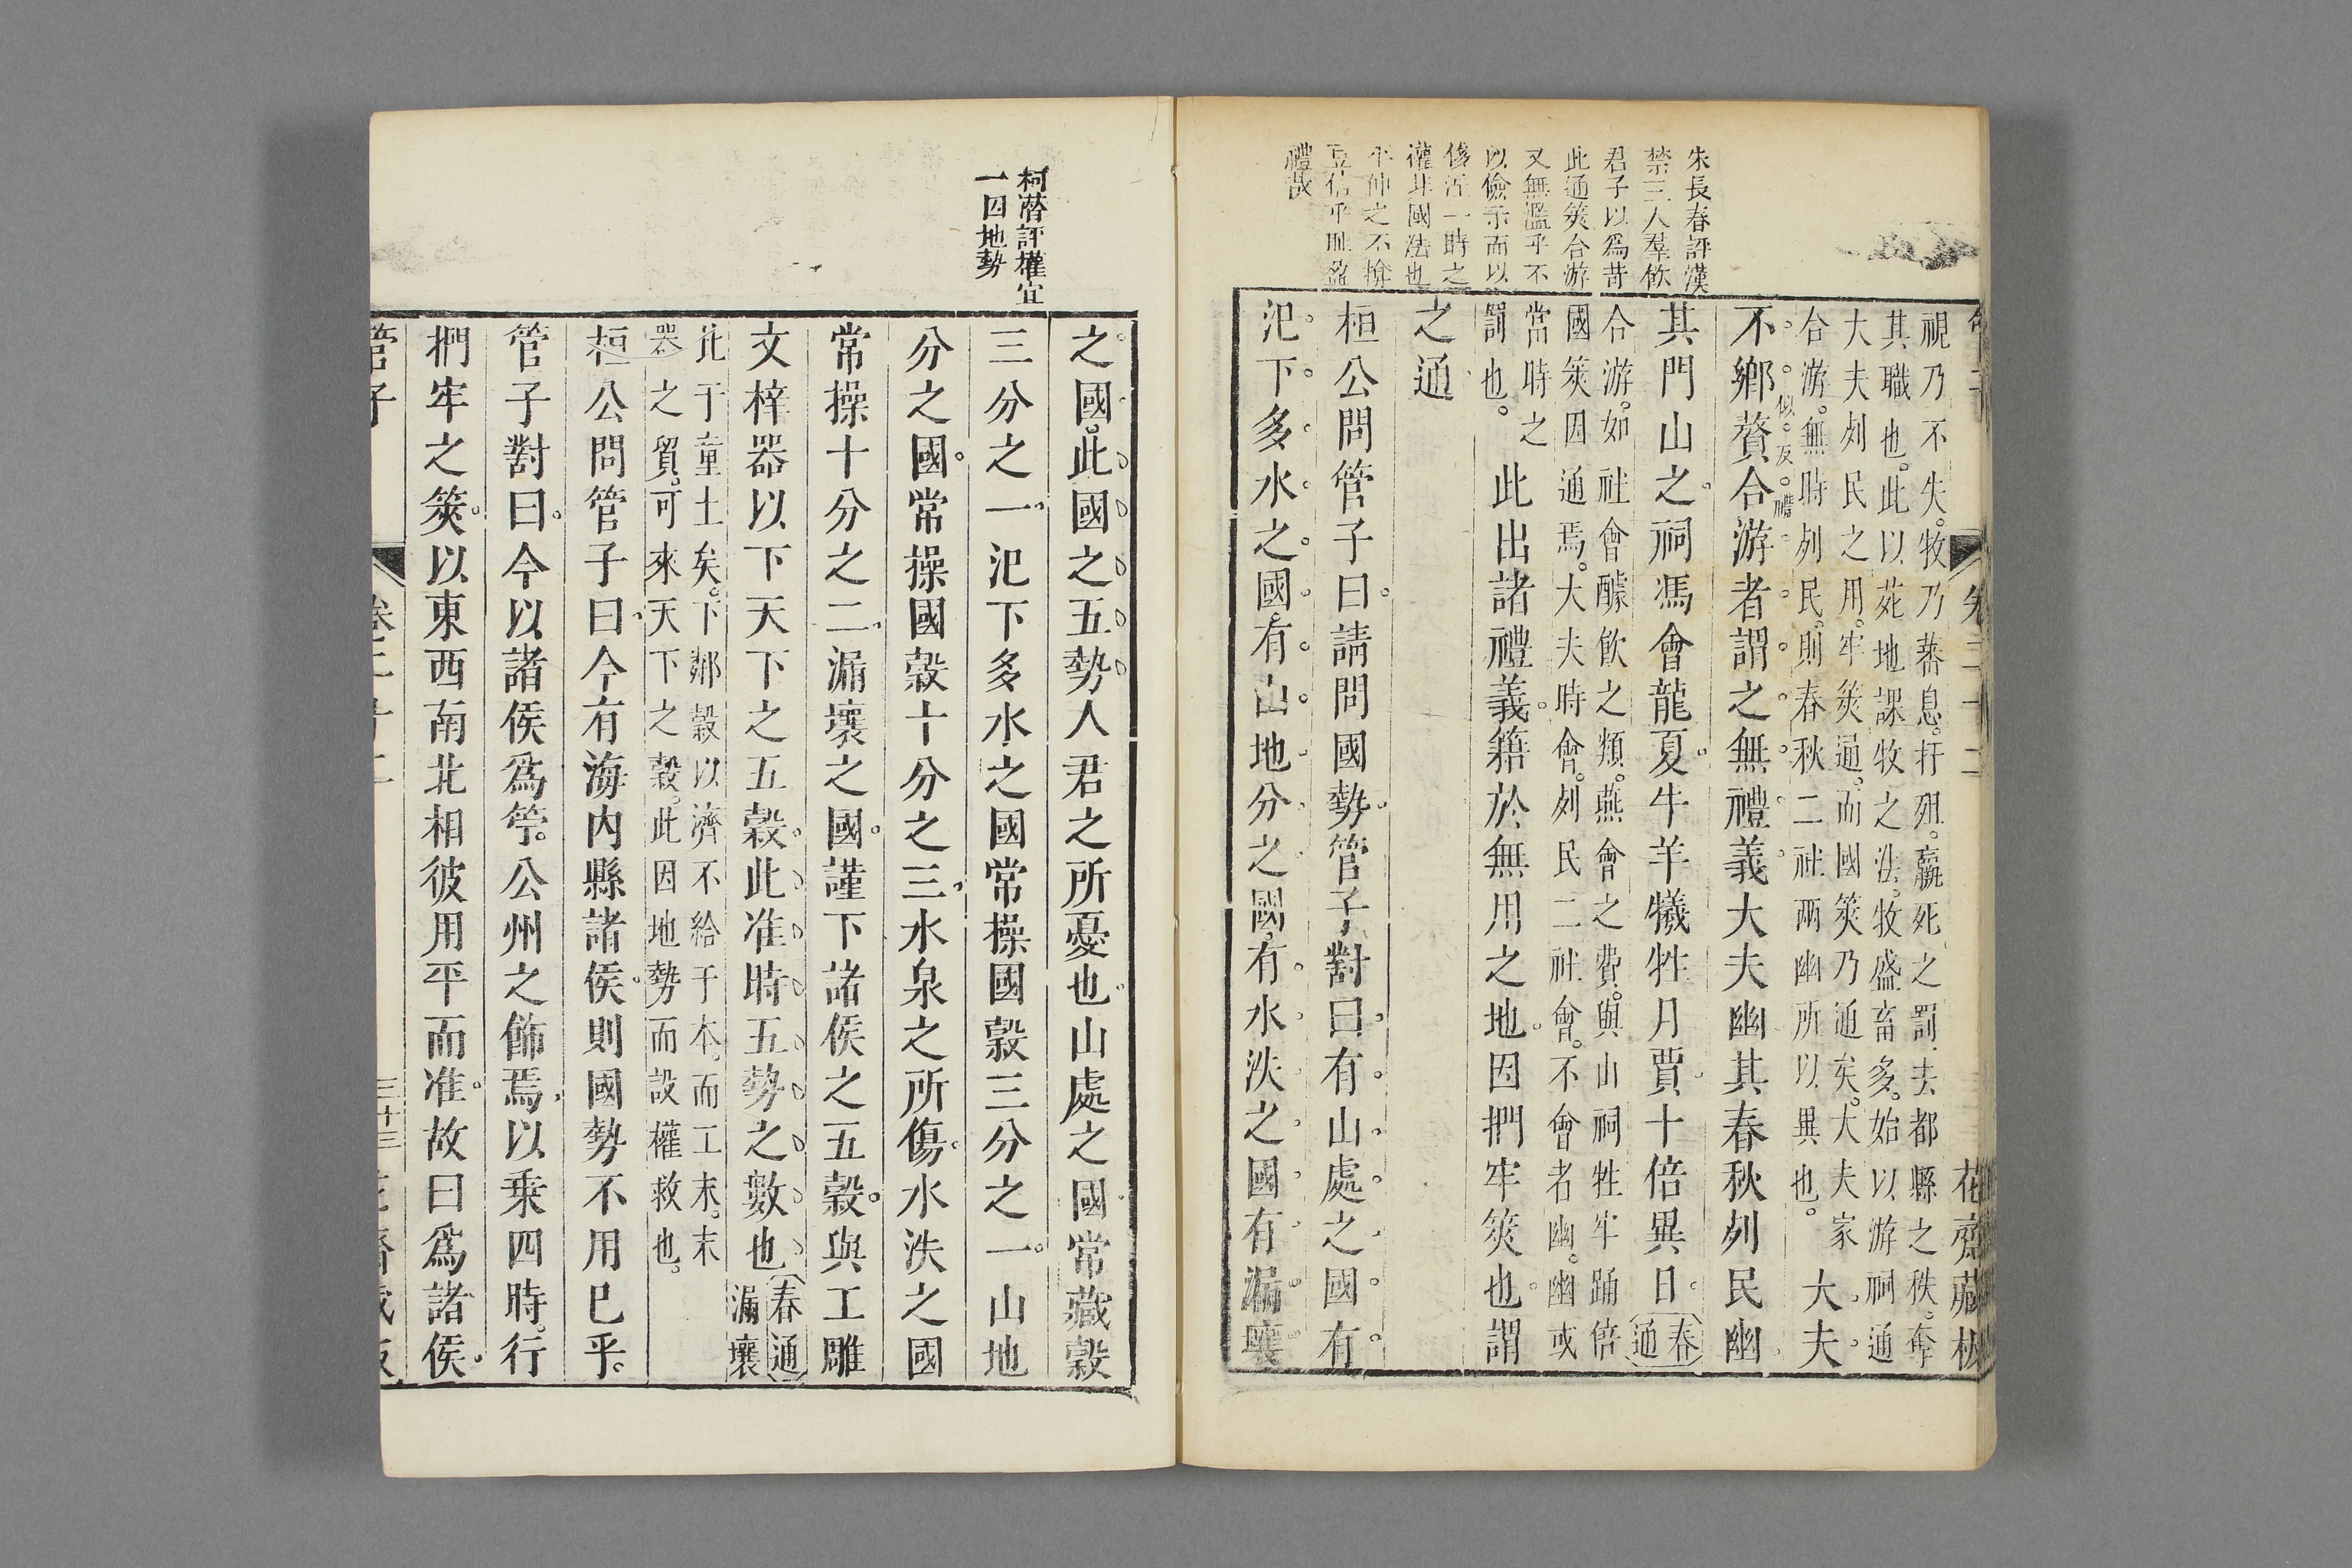 朱長春評漢
禁三人羣飲
君子以爲苛
此通筴合游
又無濫乎不
以儉示而以
侈活一時之
權非國法也
平仲之不揜
豆信乎耻盈
禮哉
管子 卷二十二 花齋藏板
視乃不失。牧乃蕃息。扞殂。羸死之罰。去都縣之秩。奪
其職也。此以苑地課牧之法。牧盛畜多。始以游祠通
大夫列民之用。牢筴通。而國筴乃通矣。大夫家
合游。無時列民。則春秋二社兩幽所以異也。大夫
似。反。禮
不鄉贅合游者謂之無禮義大夫幽其春秋列民幽
其門山之祠馮會龍夏牛羊犧牲月賈十倍異日。春通
合游。如社會醵飲之類。燕會之費。與山祠牲牢踊倍
國筴因通焉。大夫時會。列民二社會。不會者幽。幽或
當時之
罰也。此出諸禮義。籍於無用之地。因捫牢筴也。謂
之通
桓公問管子曰。請問國勢。管子對曰。有山處之國。有
氾下多水之國。有山地分之國。有水泆之國。有漏壤
柯𦽦評權宜
一因地勢
之國。此國之五勢人君之所憂也。山處之國常藏穀
三分之一。氾下多水之國常操國穀三分之一。山地
分之國。常操國穀十分之三。水泉之所傷。水泆之國
常操十分之二。漏壤之國。謹下諸侯之五穀。與工雕
文梓器以下天下之五穀。此准時五勢之數也 春通 漏壤
此于童土矣。下鄰穀以濟不給于本。而工末。末
器之貿。可來天下之穀。此因地勢而設權救也。
桓公問管子曰。今有海內縣諸侯。則國勢不用已乎。
管子對曰。今以諸侯爲䇢。公州之飾焉。以乗四時。行
捫牢之筴。以東西南北相彼用平而准。故曰爲諸侯。
管子 卷二十二 三十三 花齋藏板